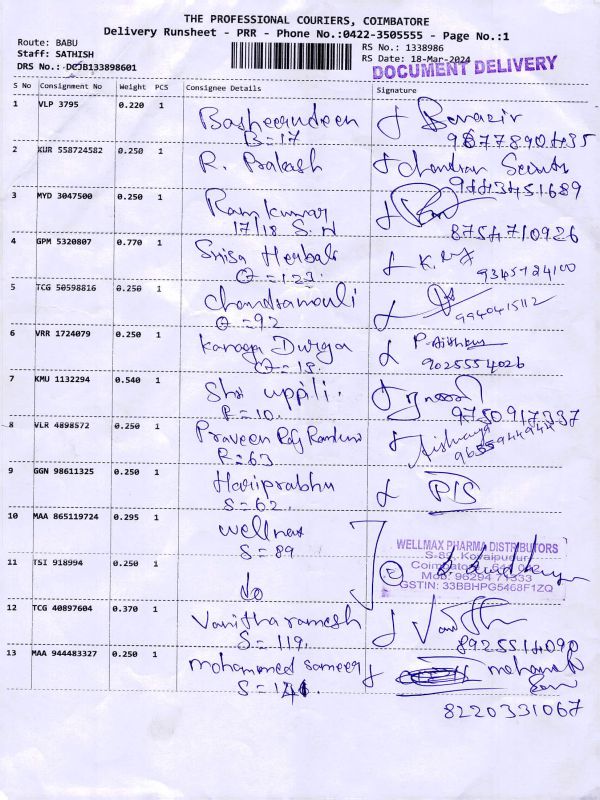 THE PROFESSIONAL COURIERS, COIMBATORE
Delivery Runsheet - PRR - Phone No.:0422-3505555 - Page No.:1
Route: BABU
Staff: SATHISH
DRS No.: DCJB133898601
RS No.: 1338986
RS Date: 18-Mar-2024
DOCUMENT DELIVERY
S No Consignment No Weight PCS Consignee Details Signature
1 VLP 3795 0.220 1 Basheerudeen Benazir
B=17 9677890435
2 KUR 558724582 0.250 1 R. Prakash Chandran
9443451689
3 MYD 3047500 0.250 1 Ramkumar
17/18 S.N 8754710926
4 GPM 5320807 0.770 1 Herbals K.
Q=123. 9345724100
5 TCG 50598816 0.250 1 Chandramouli
Q=92 9940415112
6 VRR 1724079 0.250 1 Kanaga Durga
Q=18. 9025554026
7 KMU 1132294 0.540 1 Shri uppili.
R=10. 9750917337
8 VLR 4898572 0.250 1 Praveen Raj Aishwarya
R=63 9655944944
9 GGN 98611325 0.250 1 Hariprabhu
S=62.
10 MAA 865119724 0.295 1 wellmax
S=89
WELLMAX PHARMA DISTRIBUTORS
S-89, Kovaipudur
Coimbatore - 641 042
Mob: 96294 71333
GSTIN: 33BBHPG5468F1ZQ
11 TSI 918994 0.250 1 do
12 TCG 40897604 0.370 1 Vanitha ramesh
S=119. 8925514090
13 MAA 944483327 0.250 1 mohammed sameer
8220331067